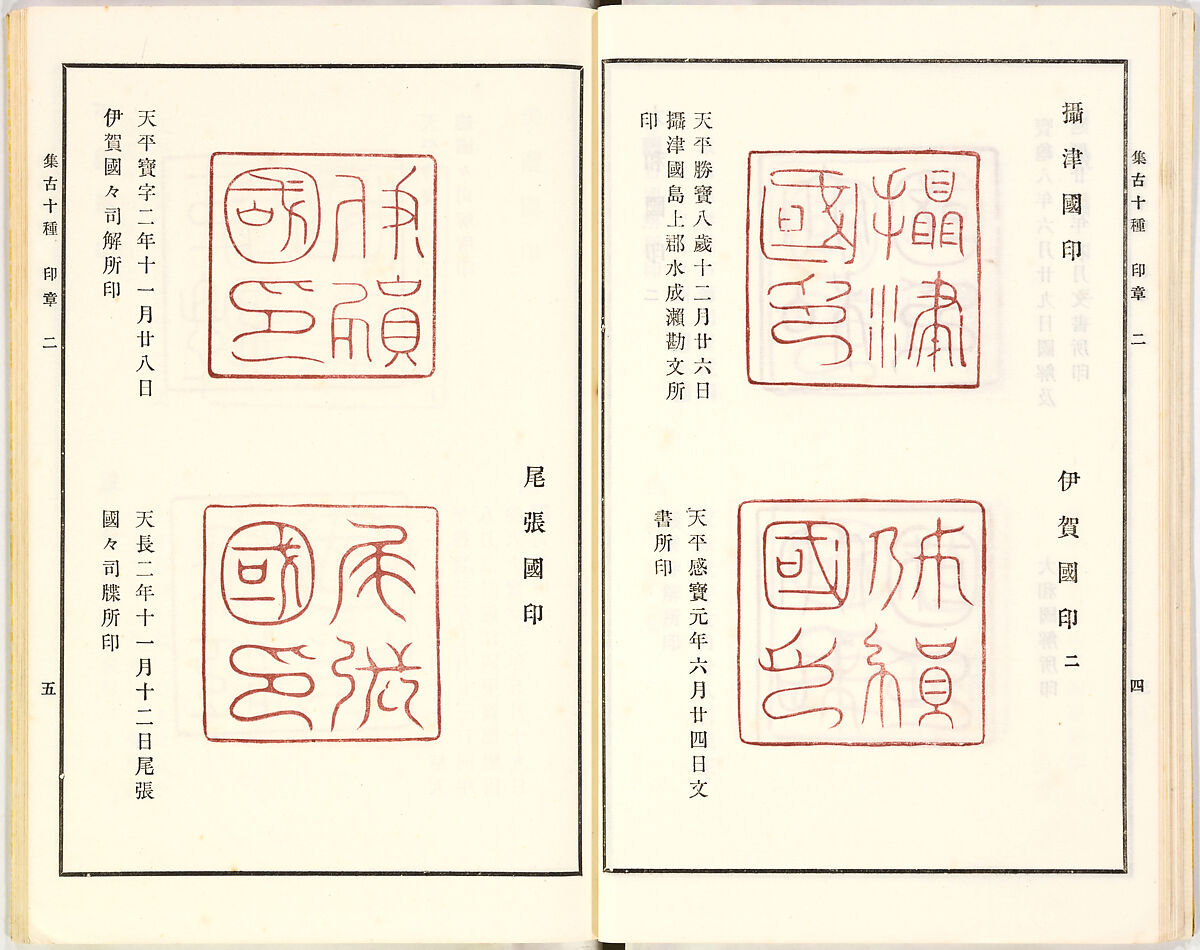 集古十種 印章 二
四
攝津國印
攝津國印
天平勝寶八歲十二月廿六日
攝津國島上郡水成瀨勘文所
印
伊賀國印 二
天平感寶元年六月廿四日文
書所印
天平寶字二年十一月廿八日
伊賀國々司解所印
尾張國印
尾張國印
天長二年十一月十二日尾張
國々司牒所印
集古十種 印章 二
五